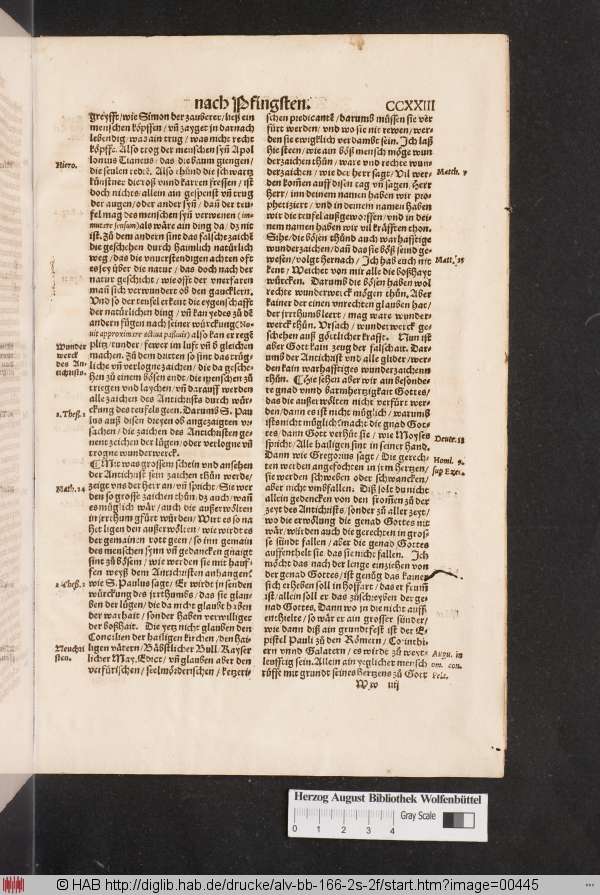 nach Pfingsten. CCXXIII
greysft/wie Simon der zauberer/ließ ein
menschen köpffen/ vñ zayget in darnach
lebendig/ was ain trug/ was nicht recht
köpfft. Also trog der menschen syñ Apol
lonius Tianeus/ das die baum giengen/
die seulen redtē. Also thünd die schwartz
künstner die roß vnnd karren fressen/ ist
doch nichts/ allein ain gespenst vñ trug
der augen/ oder ander syñ/ dañ der teu-
fel mag des menschen syñ verwenen (im-
mutare sensum) als wäre ain ding da/ dz nit
ist. Zů dem andern sind das falsche zaichē
die geschehen durch haimlich natürlich
weg/das die vnuerstendigen achten oft
es sey über die natur/ das doch nach der
natur geschicht/ wie offt der vnerfaren
man sich verwundert ob den gaucklern.
Vnd so der teufel erkent die eygenschafft
der natürlichen ding/ vñ kan yedes zů dē
andern fügen nach seiner würckung (No-
uit approximare actiua passiuis) also kan er regē
plitz/ tunder/ fewer im lufft vñ d gleichen
machen. Zů dem dritten so sind das trüg-
liche vñ verlogne zaichen/ die da gesche-
hen zů einem bösen ende/ die menschen zů
triegen vnd laychen/ vñ darauff werden
alle zaichen des Antichrists durch wür-
ckung des teufels geen. Darumb S. Pau
lus auß disen dreyen ob angezaigten vr-
sachen/ die zaichen des Antichristen ge-
nent zaichen der lügen/ oder verlogne vñ
trogne wunderwerck.
Mit was grossem schein vnd ansehen
der Antichrist sein zaichen thůn werde/
zeigt vns der herr an/ vñ spricht/ Sie wer
den so grosse zaichen thůn/ dz auch/ wañ
es müglich wär/ auch die außerwölten
in irrthum gfürt würden/ Wirt es so na
het ligen den außerwölten/ wie wirdt es
der gemainen rott geen/ so inn gemain
des menschen synn vñ gedancken gnaigt
sint zů bösem/ wie werden sie mit hauf-
fen weyß dem Antichristen anhangen?
wie S. Paulus sagt/ Er wirdt in senden
würckung des irrthumbs/ das sie glau-
ben der lügen/ die da nicht glaubt haben
der warhait/ sonder haben verwilliget
der boßhait. Die yetz nicht glauben den
Concilien der hailigen kirchen/ den hai-
ligen vätern/ Bäbstlicher Bull/ Kayser
licher May. Edict/ vñ glauben aber den
verfürischen/ seelmörderischen/ ketzeri-
schen predicantē/ darumb müssen sie ver
fürt werden/ vnd wo sie nit rewen/ wer-
den sie ewigklich verdambt sein. Ich laß
hie steen/ wie ain böß mensch möge wun
derzaichen thůn/ ware vnd rechte wun-
derzaichen/ wie der herr sagt/ Vil wer-
den kom̃en auff disen tag vñ sagen/ Herr
Herr/ inn deinem namen haben wir pro-
phetiziert/ vnd in deinem namen haben
wir die teufel außgeworffen/ vnd in dei-
nem namen haben wir vil kräfften thon.
Sihe/ die bösen thůnd auch warhafftige
wunderzaichen/ dañ das sie böß seind ge-
wesen/ volgt hernach/ Ich hab euch nit
kent/ Weichet von mir alle die boßhayt
würcken. Darumb die bösen haben wol
rechte wunderwerck mögen thůn. Aber
kainer der einen vnrechten glauben hat/
der irrthumb leert/ mag ware wunder-
werck thůn. Vrsach/ wunderwerck ge-
schehen auß göttlicher krafft. Nun ist
aber Gott kain zeug der falschait. Dar-
umb der Antichrist vnd alle glider/ wer-
den kain warhafftiges wunderzaichenn
thůn. Hie sehen aber wir ain besonde-
re gnad vnnd barmhertzigkait Gottes/
das die außerwölten nicht verfürt wer-
den/dann es ist nicht müglich/ warumb
ists nicht müglich? macht die gnad Got-
tes/ dann Gott verhüt sie/ wie Moyses
spricht/ Alle hailigen sind in seiner hand.
Dann wie Gregorius sagt/ Die gerech-
ten werden angefochten in irm hertzen/
sie werden schweben oder schwancken/
aber nicht vmbfallen. Diß solt du nicht
allein gedencken von den from̃en zů der
zeyt des Antichrists/ sonder zů aller zeyt/
wo die erwölung die genad Gottes nit
wär/ würden auch die gerechten in gros-
se sünd fallen/ aber die genad Gottes
auffenthelt sie das sie nit fallen. Ich
möcht das nach der lenge einziehen von
der genad Gottes/ ist genůg das kainer
sich erheben soll in hoffart/ das er frum̃
ist/ allein soll er das zůschreyben der ge-
nad Gottes. Dann wo in die nicht auff
enthielte/ so wär er ain grosser sünder/
wie dann diß ain grundtfest ist der E-
pistel Pauli zů den Römern/ Corinthi-
ern vnnd Galatern/ es wirdt zů weyt-
leuffig sein. Allein ain yeglicher mensch
rüffe mit grundt seines hertzens zů Gott
Hiero.
Wunder
werck
des An-
tichrists.
2. Thess. 2
Math. 24
2. Thess. 2
Neuchri
sten.
Matth. 7
Matt. 25
Deute. 33
Homil. 9.
sup Ezec.
Augu. in
om. con.
Pela.
Herzog August Bibliothek Wolfenbüttel
Gray Scale
0 1 2 3 4
© HAB http://diglib.hab.de/drucke/alv-bb-166-2s-2f/start.htm?image=00445